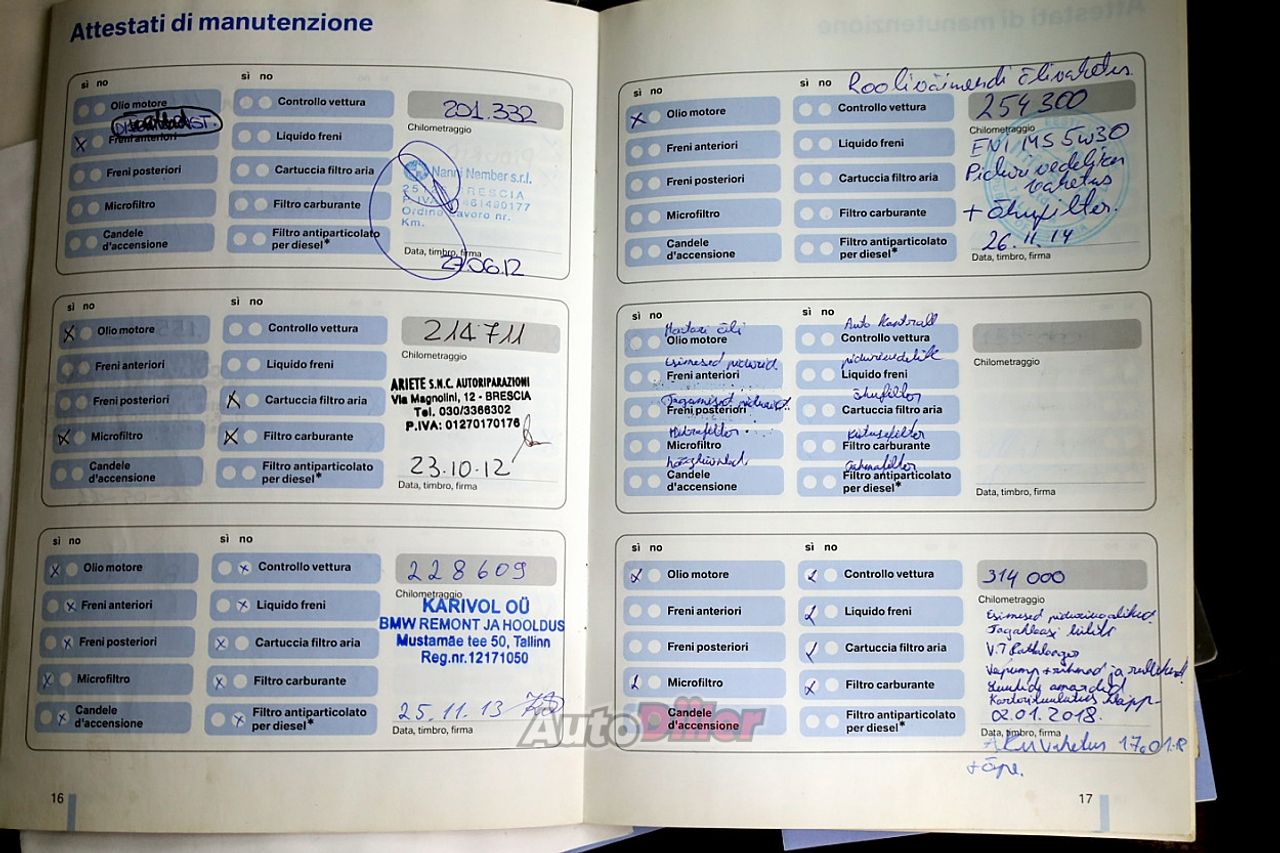 Attestati di manutenzione
sì no
sì no
Olio motore
Controllo vettura
201.332
Chilometraggio
Freni anteriori
Liquido freni
Freni posteriori
Cartuccia filtro aria
Nanni Nember s.r.l.
BRESCIA
Ordine Lavoro nr.
Km.
Microfiltro
Filtro carburante
Candele
d'accensione
Filtro antiparticolato
per diesel*
Data, timbro, firma
27.06.12
sì no
sì no
Olio motore
Controllo vettura
214711
Chilometraggio
Freni anteriori
Liquido freni
ARIETE S.N.C. AUTORIPARAZIONI
Via Magnolini, 12 - BRESCIA
Tel. 030/3366302
P.IVA: 01270170176
Freni posteriori
Cartuccia filtro aria
Microfiltro
Filtro carburante
23.10.12
Candele
d'accensione
Filtro antiparticolato
per diesel*
Data, timbro, firma
sì no
sì no
Olio motore
Controllo vettura
228609
Chilometraggio
Freni anteriori
Liquido freni
KARIVOL OÜ
BMW REMONT JA HOOLDUS
Mustamäe tee 50, Tallinn
Reg.nr.12171050
Freni posteriori
Cartuccia filtro aria
Microfiltro
Filtro carburante
25.11.13
Candele
d'accensione
Filtro antiparticolato
per diesel*
Data, timbro, firma
16
sì no
sì no
Roolivõimendi õlivahetus
Olio motore
Controllo vettura
254300
Chilometraggio
Freni anteriori
Liquido freni
ENI MS 5w30
Pidurivedeliku
vahetus
+ õhufilter.
26.11.14
Freni posteriori
Cartuccia filtro aria
Microfiltro
Filtro carburante
Candele
d'accensione
Filtro antiparticolato
per diesel*
Data, timbro, firma
sì no
sì no
Mootori õli
Olio motore
Auto Kontroll
Controllo vettura
Chilometraggio
Esimesed pidurid
Freni anteriori
pidurivedelik
Liquido freni
Tagumised pidurid
Freni posteriori
õhufilter
Cartuccia filtro aria
Microfiltro
Kütusefilter
Filtro carburante
Candele
d'accensione
Filtro antiparticolato
per diesel*
Data, timbro, firma
sì no
sì no
Olio motore
Controllo vettura
314 000
Chilometraggio
Freni anteriori
Liquido freni
Esimesed
Freni posteriori
Cartuccia filtro aria
Microfiltro
Filtro carburante
02.01.2018.
Candele
d'accensione
Filtro antiparticolato
per diesel*
Data, timbro, firma
Aku vahetus 17.01.18
17
AutoDiiler